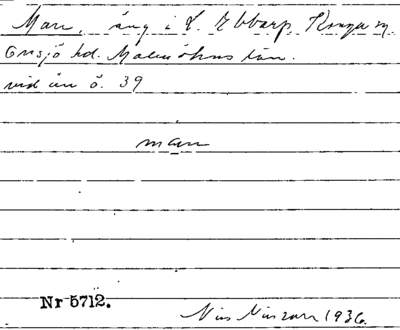 Marr, äng i L. Ebbarp. Konga sn.
Onsjö hd. Malmöhus län.
vid ån ö. 39
marr
Nr 5712.
Nils Nilsson 1936.